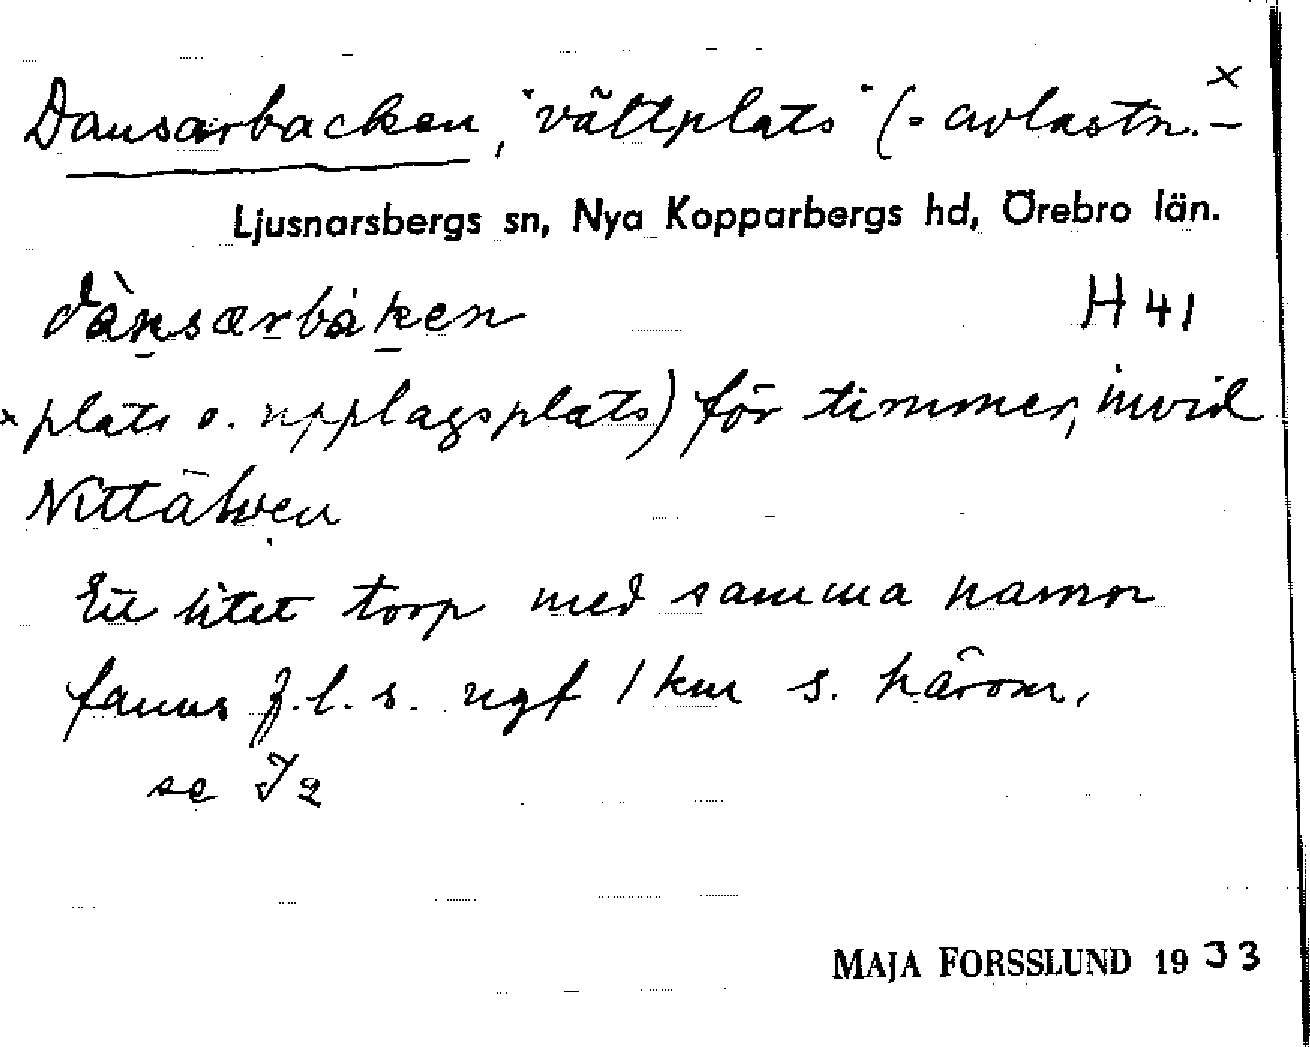 Dansarbacken, "vältplats" (= avlastn.- x
Ljusnarsbergs sn, Nya Kopparbergs hd, Örebro län.
dànsærbáken H 41
x plats o. upplagsplats) för timmer, invid
Nittälven
Ett litet torp med samma namn
fanns f.l.s. ngt 1 km s. härom,
se I2
MAJA FORSSLUND 1933